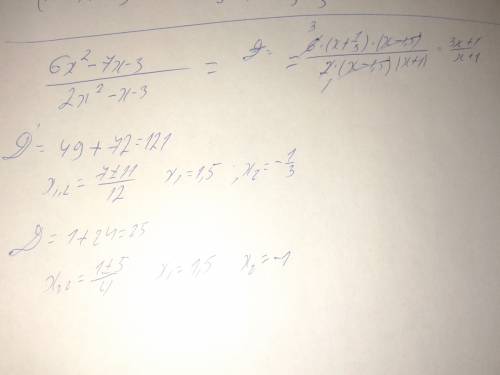 6x²-7x-3 / 2x²-x-3 = D= = 6³·(x+1/3)·(x-1,5) / 2₁·(x-1,5)(x+1) = 3x+1 / x+1
D = 49+72=121
x₁,₂ = 7±11 / 12 x₁=1,5 ; x₂=-1/3
D = 1+24=25
x₁,₂ = 1±5 / 4 x₁=1,5 x₂=-1